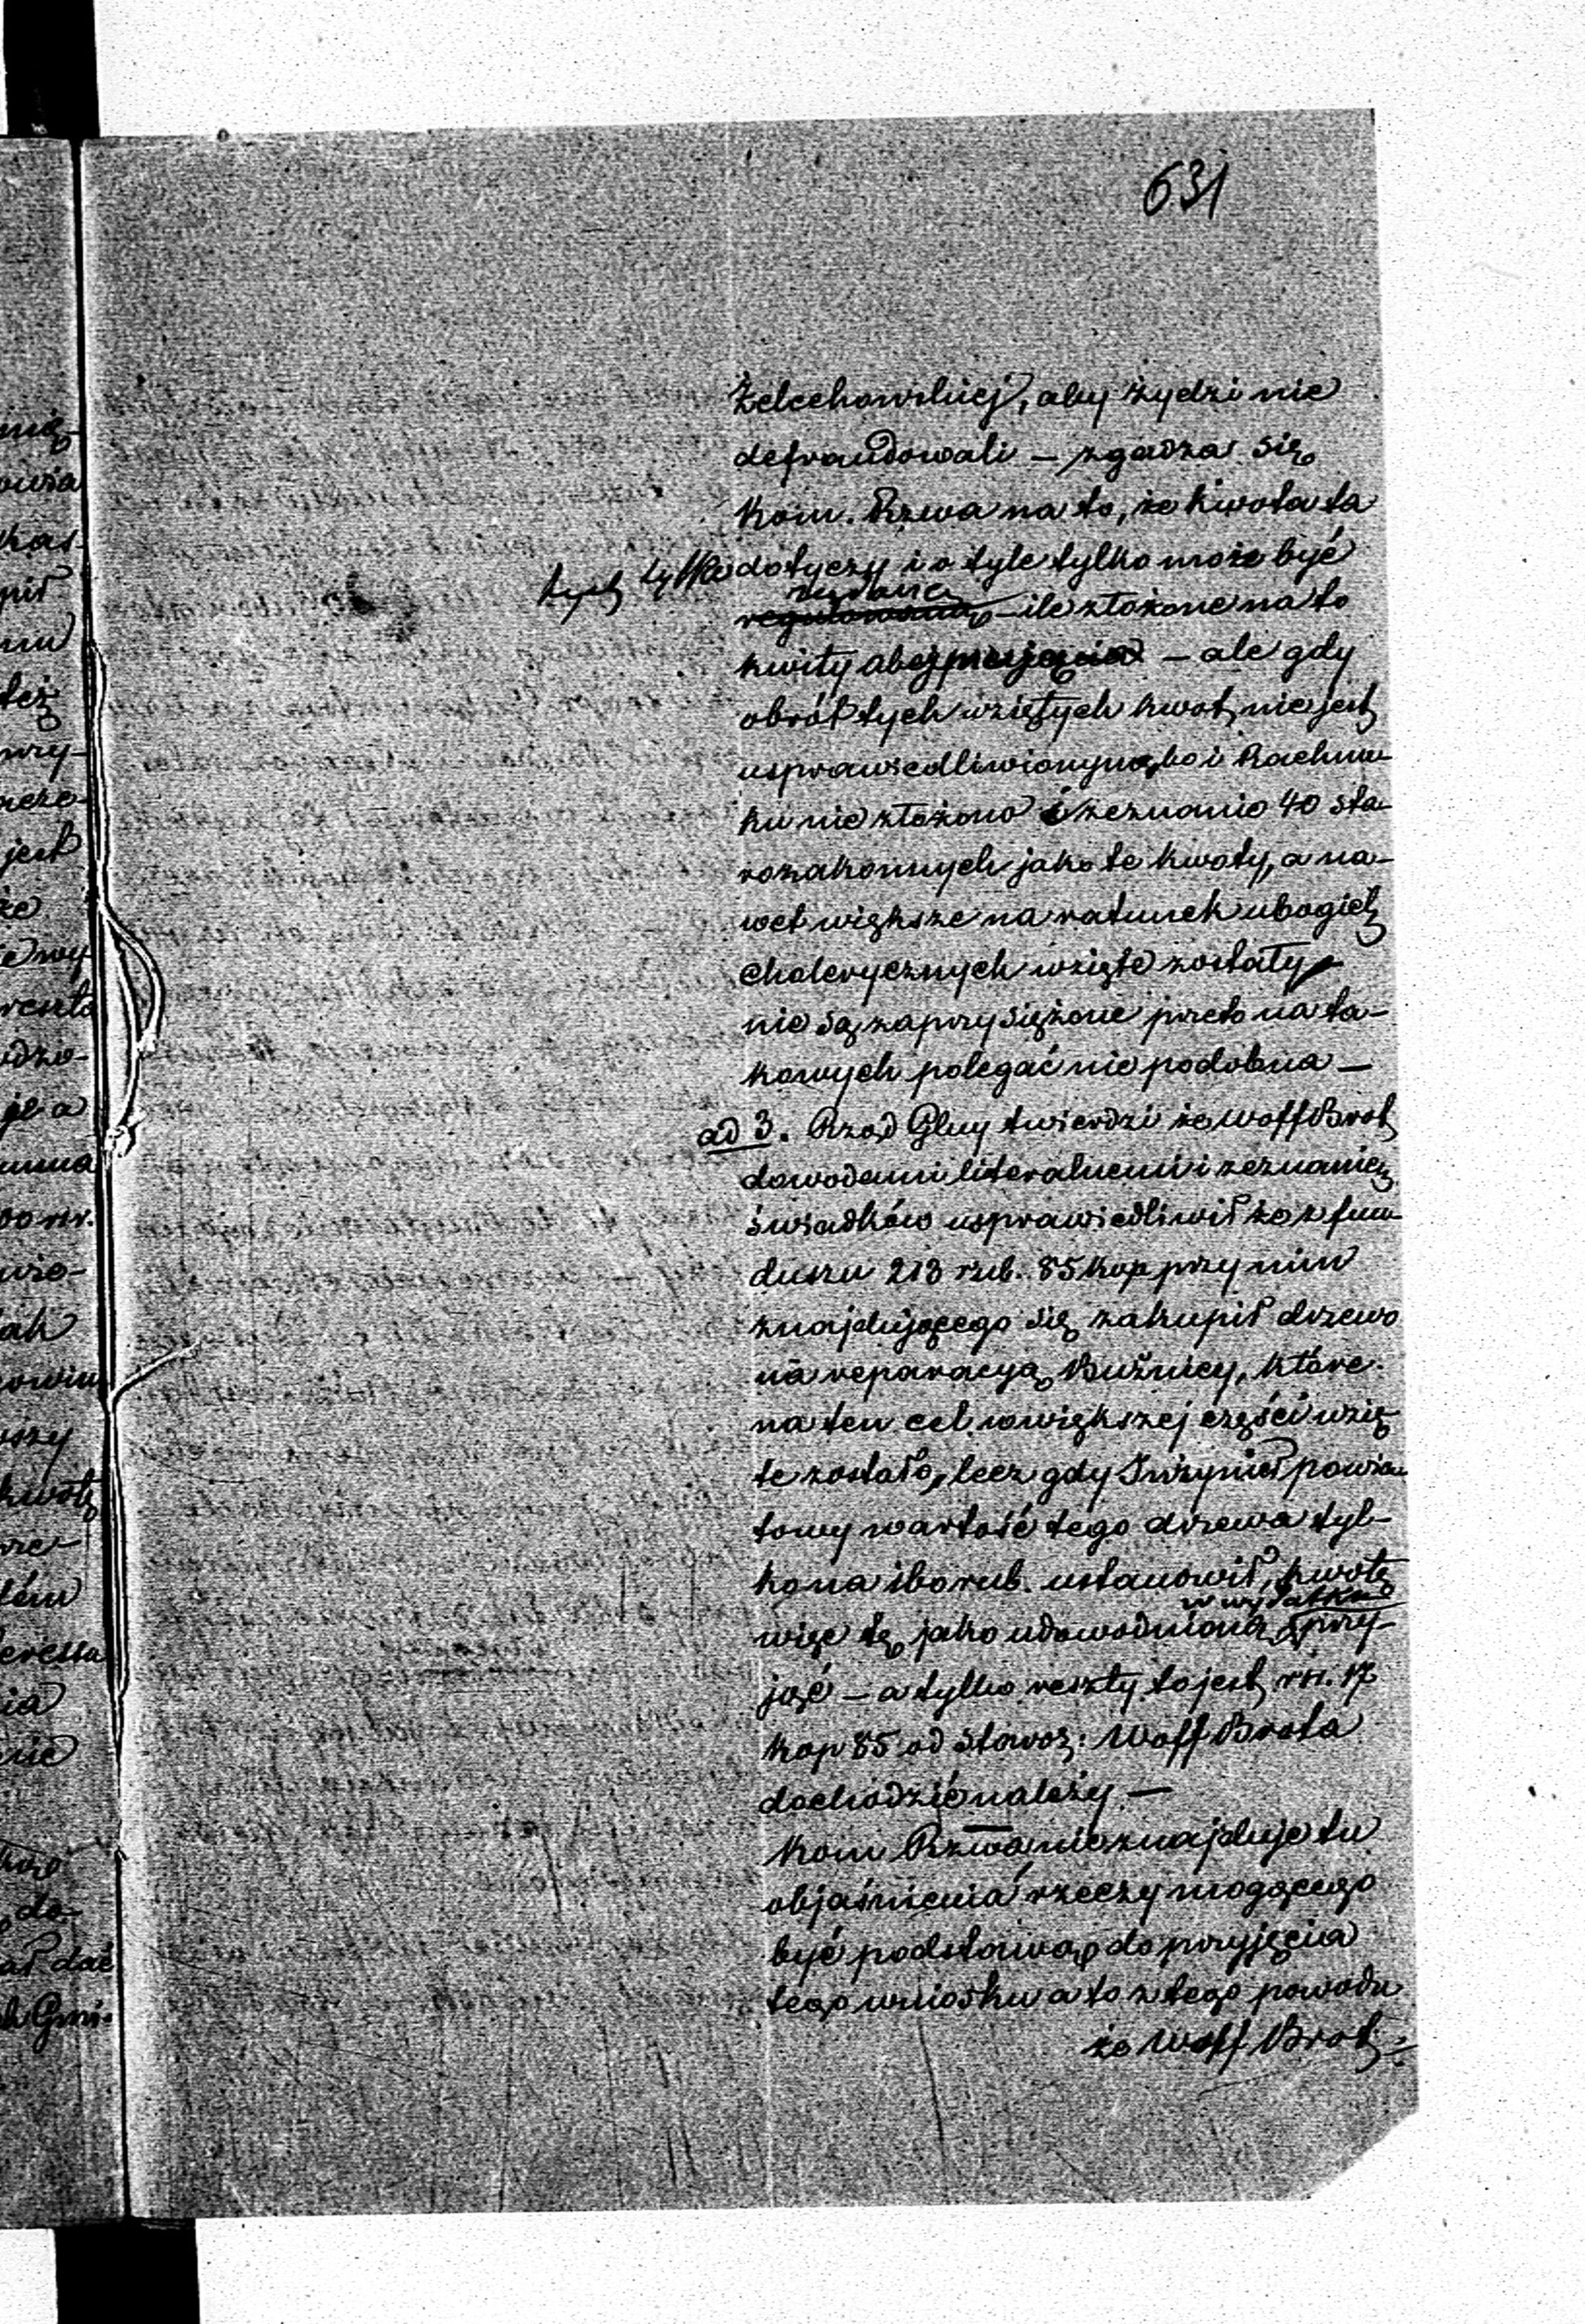 631
Żelechowskiej, aby żydzi nie
defraudowali – zgadza się
Kom. Rzwa na to, że kwota ta
tych tylko dotyczy i o tyle tylko może być
wydaną
regulowaną – ile złożone na to
kwity – ale gdy
obrót tych wziętych kwot, nie jest
usprawiedliwionym, bo i Rachun-
ku nie złożono i zeznanie 40 sta-
rozakonnych jako te kwoty, a na-
wet większe na ratunek ubogich
cholerycznych wzięte zostały
nie są zaprzysiężone przeto na ta-
kowych polegać nie podobna –
ad 3. Rząd Glny twierdzi że Wolff Brot
dowodami literalnemi i zeznaniem
świadków usprawiedliwił że z fun-
duszu 213 rub. 85 kop przy nim
znajdującego się zakupił drzewo
na reparacyą Bużnicy, które
na ten cel w większej części wzię-
te zostało, lecz gdy Inżynier powia-
towy wartość tego drzewa tyl-
ko na rub. ustanowił, kwotę
w wydatku
więc tę jako udowodnioną przy-
jąć – a tylko reszty to jest rsr. 17
kop 85 od Staroz: Wolff Brota
dochodzić należy –
Kom Rzwa nie znajduje tu
objaśnienia rzeczy mogącego
być podstawą do przyjęcia
tego wniosku a to z tego powodu
że Wolff Brot